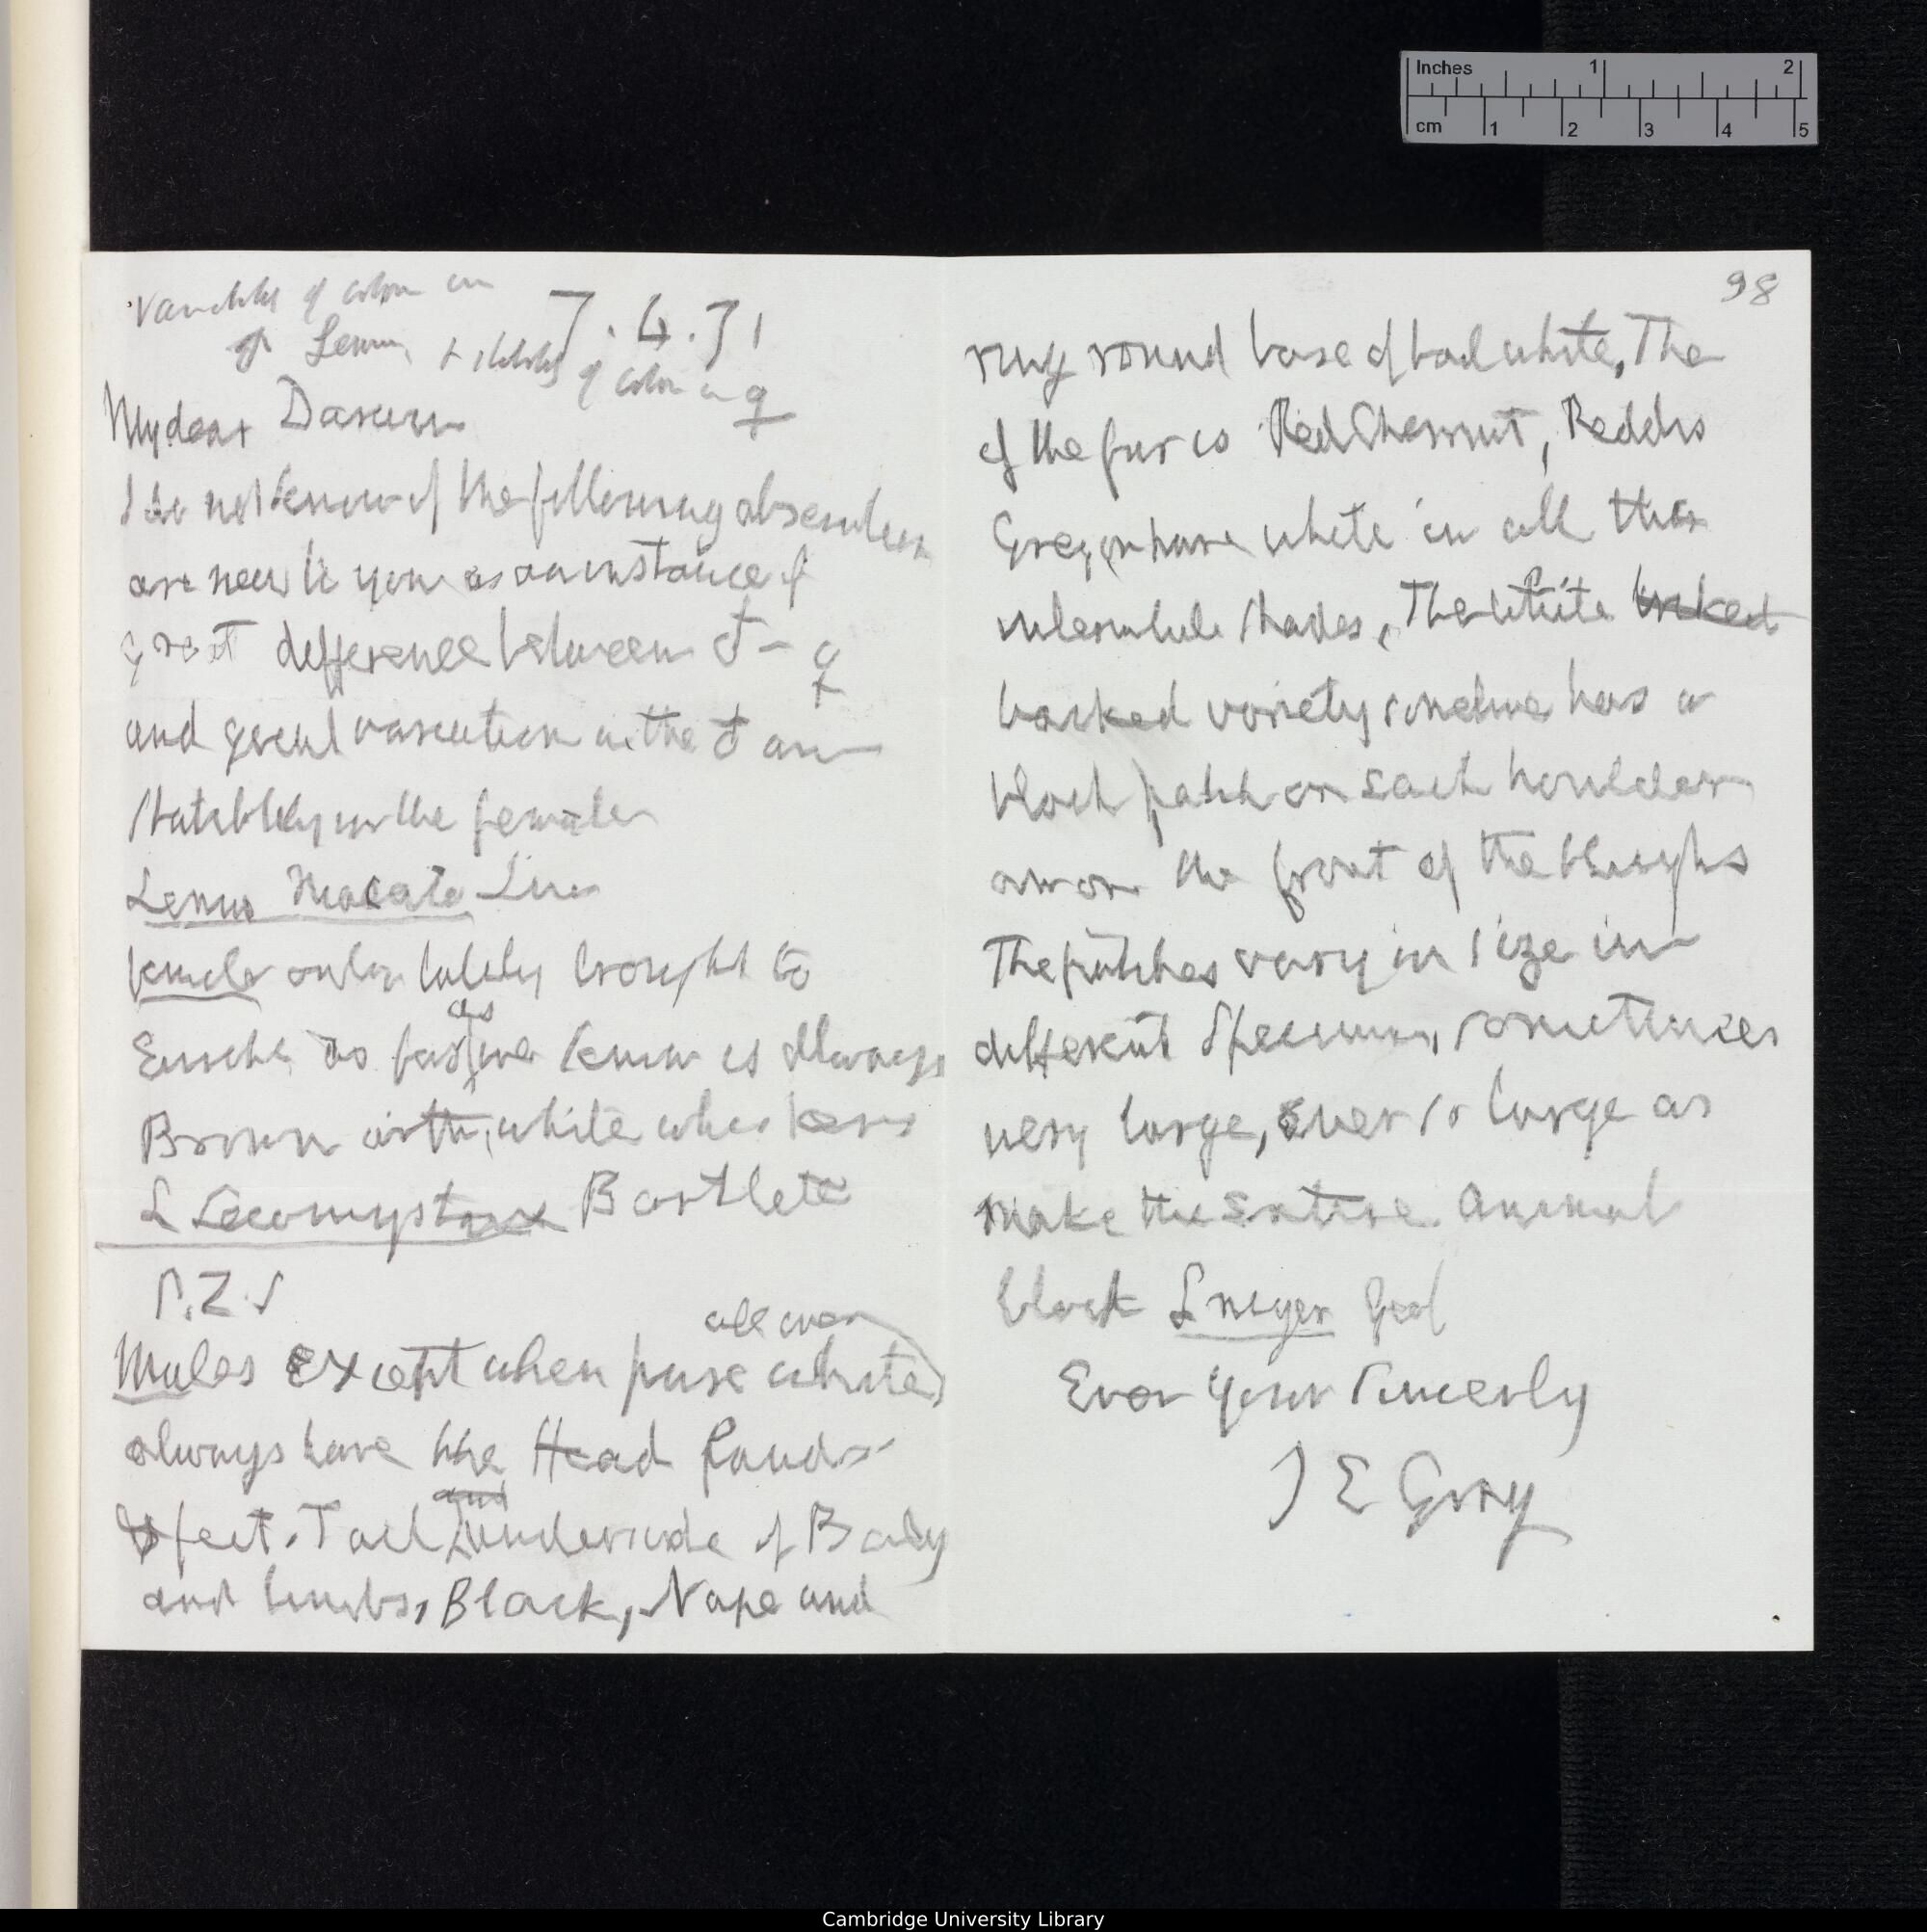 Variability of colour in
♂ Lemur, & stability of colour in ♀
7.4.71
My dear Darwin
I do not know if the following observation
are new to you as an instance of
great difference between ♂ – ♀
and great variation in the ♂ and
stability in the female
Lemur Macaco Lin
female only lately brought to
Europe as far as we know is always
Brown with white whiskers
L Leucomystax Bartlett
P.Z.S
Males except when pure white all over
always have the Head hands
& feet. Tail and underside of Body
and limbs, Black, Nape and
98
ring round base of tail white, The
of the fur is Red Chesnut, Reddis
Grey, or have white in all their
intermediate shades, The white baked
backed variety sometimes has a
black patch on each houlder
and on the front of the thieghs
The patches vary in size in
different Specimens, sometimes
very large, even so large as
make the entire animal
black L niger Geof
Ever your Sincerly
J E Gray
Inches 1 2
cm 1 2 3 4 5
Cambridge University Library